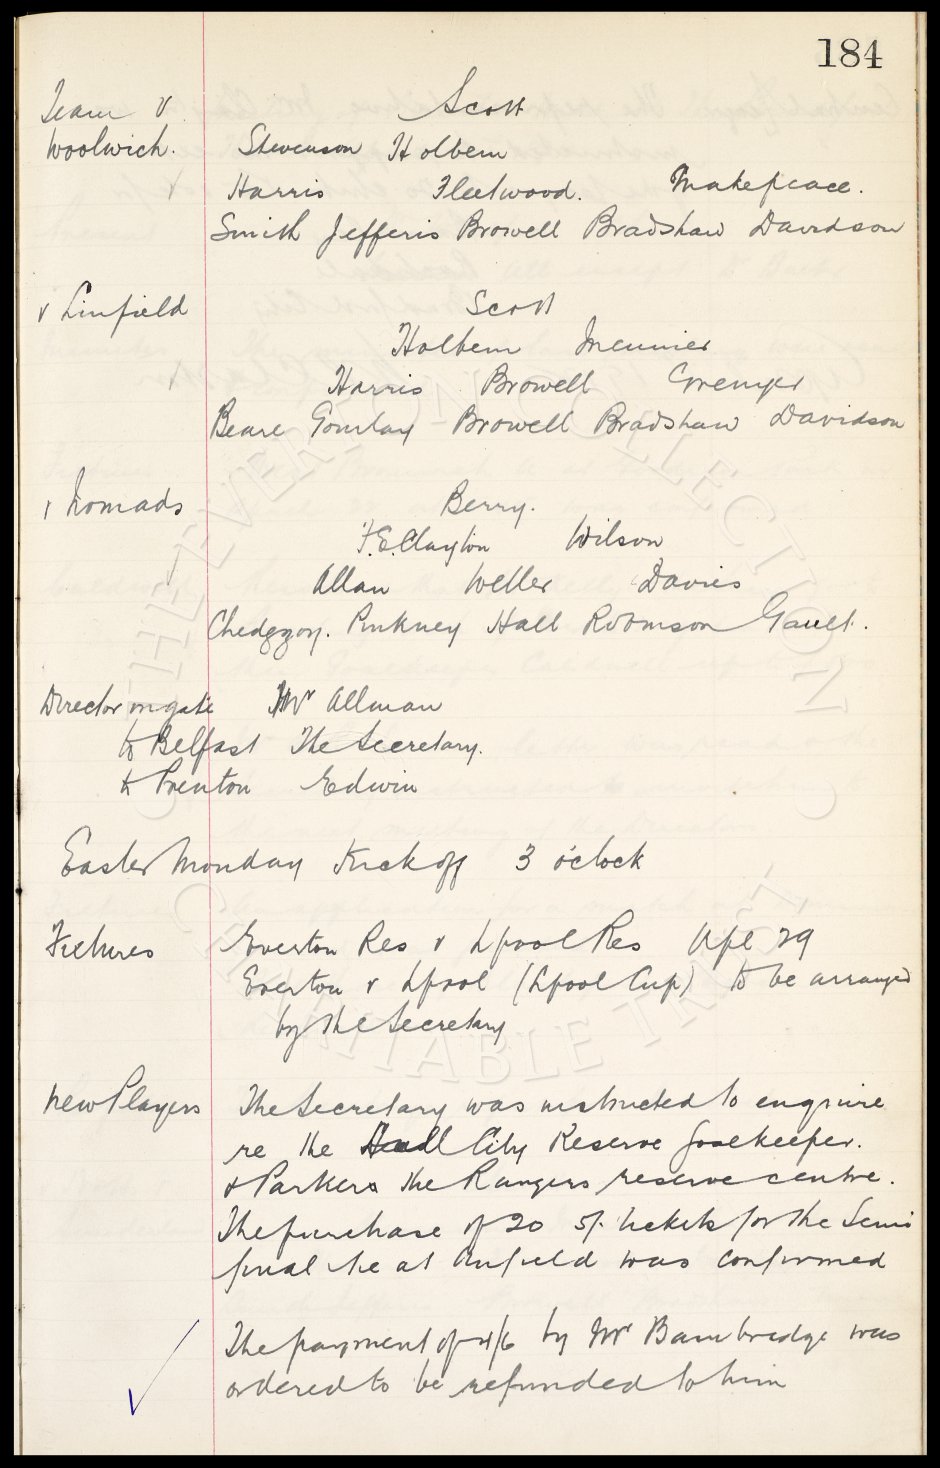 184
Team v Scott
Woolwich. Stevenson Holbem
Harris Fleetwood. Makepeace.
Smith Jefferis Browell Bradshaw Davidson
v Linfield Scott
Holbem Meunier
Harris Browell Grenyer
Beare Gourlay Browell Bradshaw Davidson
v Nomads Berry.
F.E. Clayton Wilson
Allan Weller Davies
Chedgzoy. Pinkney Hall Robinson Gault.
Director on gate Mr Allman
to Belfast The Secretary.
to Prenton Edwin
Easter Monday Kick off 3 o'clock
Fixtures Everton Res v Lpool Res Apl 29
Everton v Lpool (Lpool Cup) to be arranged
by the Secretary
New Players The Secretary was instructed to enquire
re the Hull City Reserve Goalkeeper.
& Parkers the Rangers reserve centre.
The purchase of 20 5/- tickets for the Semi
final tie at Anfield was confirmed
The payment of 4/6 by Mr Bainbridge was
ordered to be refunded to him
THE EVERTON COLLECTION
CHARITABLE TRUST